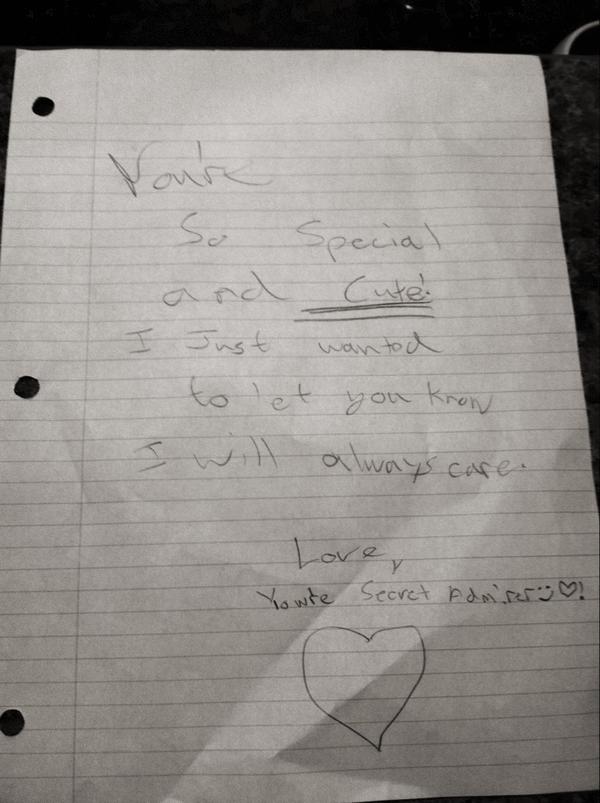 You're
So Special
and Cute!
I Just wanted
to let you know
I will always care.
Love,
Secret Admirer ☺♡!